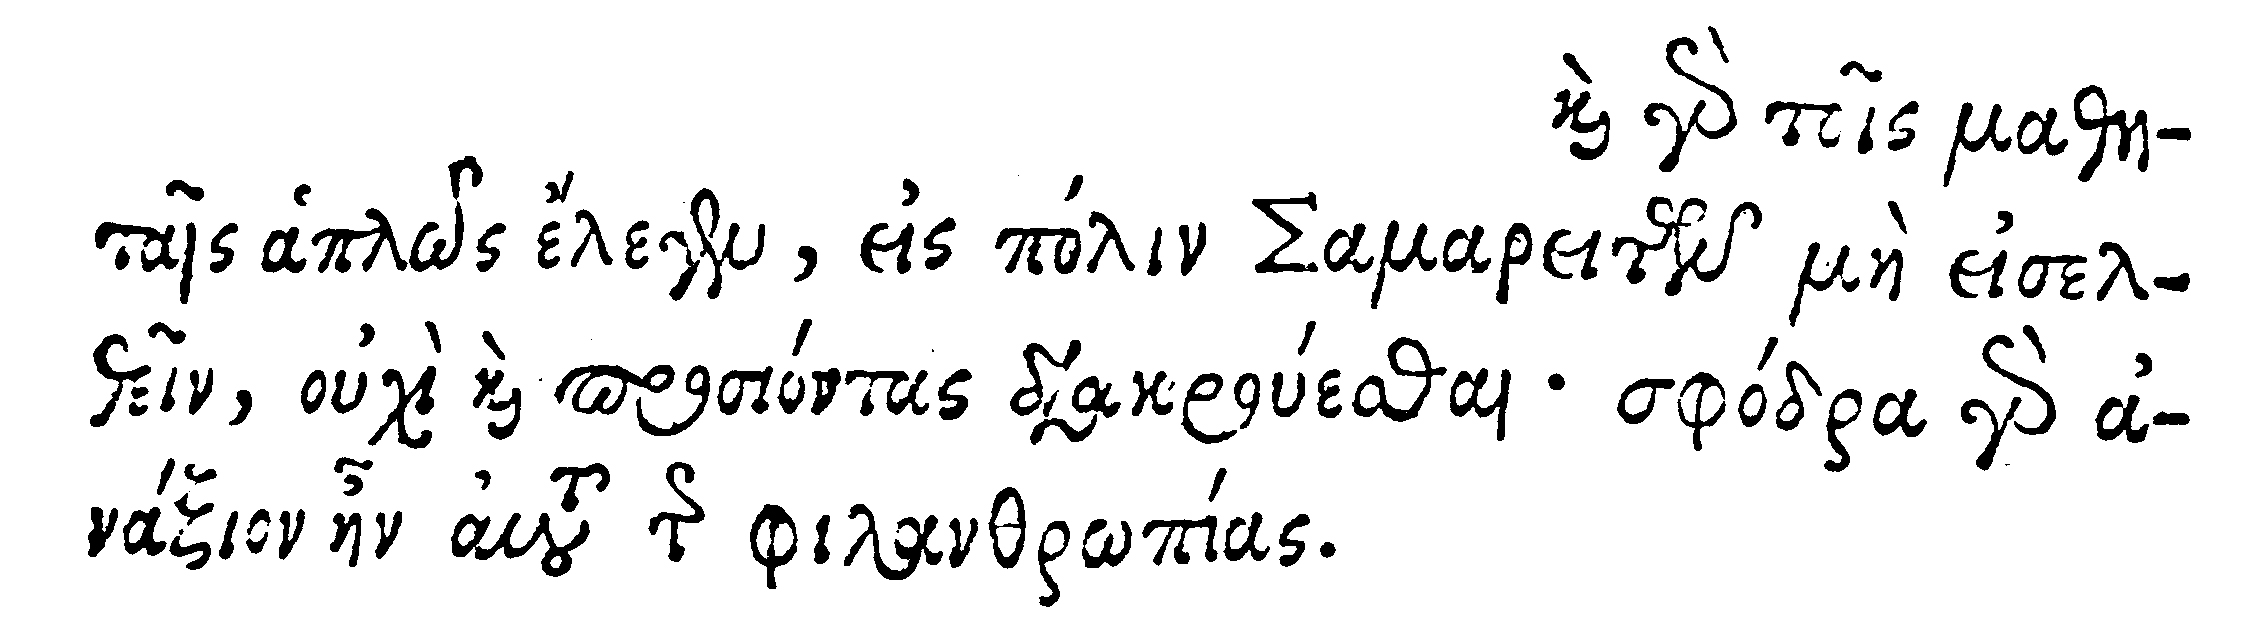 καὶ γὰρ τοῖς μαθη-
ταῖς ἁπλῶς ἔλεγεν, εἰς πόλιν Σαμαρειτῶν μὴ εἰσελ-
θεῖν, οὐχὶ καὶ προσιόντας διακρούεσθαι· σφόδρα γὰρ ἀ-
νάξιον ἦν αὐτοῦ τῆς φιλανθρωπίας.